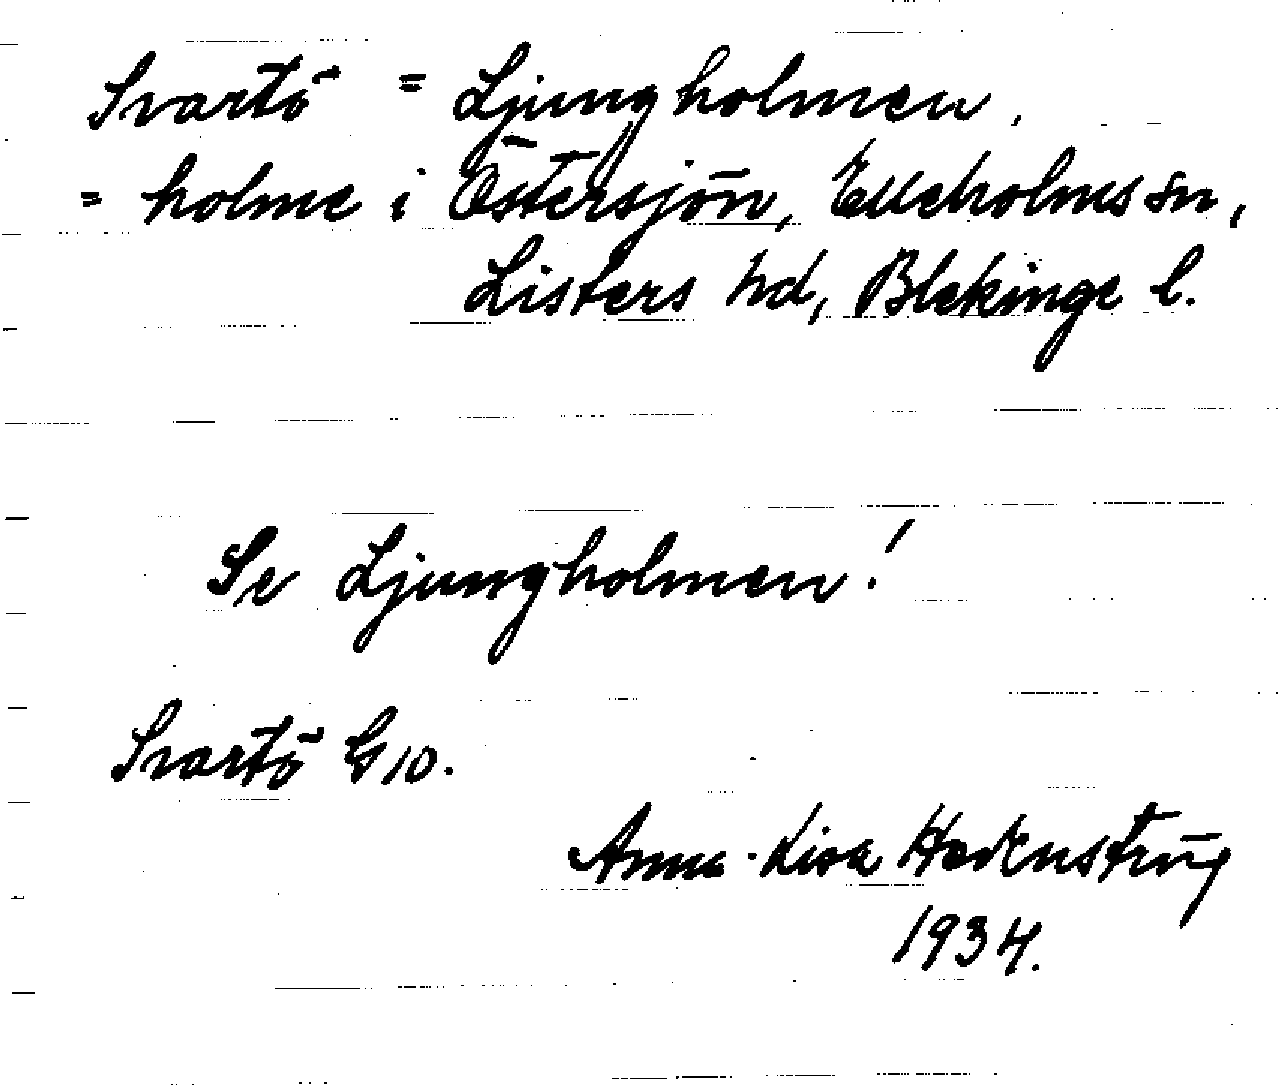 Svartö = Ljungholmen,
= holme i Östersjön, Elleholms sn,
Listers hd, Blekinge l.
Se Ljungholmen!
Svartö G10.
Anna-Lisa
1934.